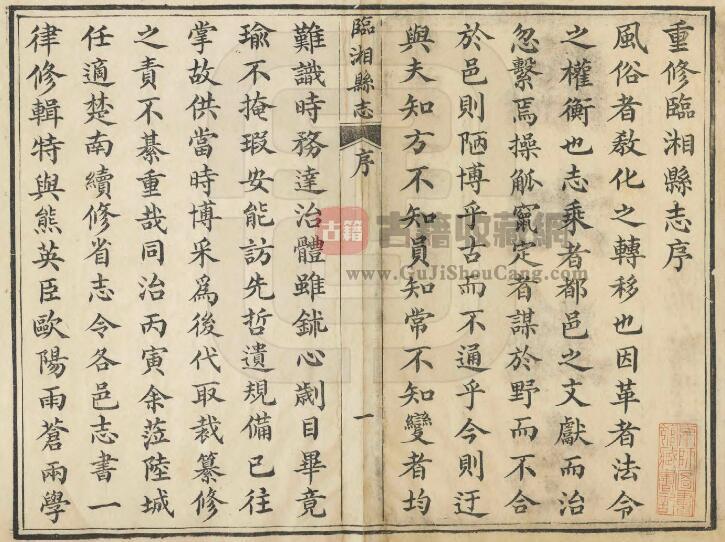 重修臨湘縣志序
風俗者教化之轉移也因革者法令
之權衡也志乘者都邑之文獻而治
忽繫焉操觚竄定者謀於野而不合
於邑則陋博乎古而不通乎今則迂
與夫知方不知員知常不知變者均
臨湘縣志
序
一
難識時務達治體雖鉥心劌目畢竟
瑜不掩瑕安能訪先哲遺規備已往
掌故供當時博采為後代取裁纂修
之責不綦重哉同治丙寅余蒞陸城
任適楚南續修省志令各邑志書一
律修輯特與熊英臣歐陽雨蒼兩學
古籍
古籍收藏網
www.GuJiShouCang.com